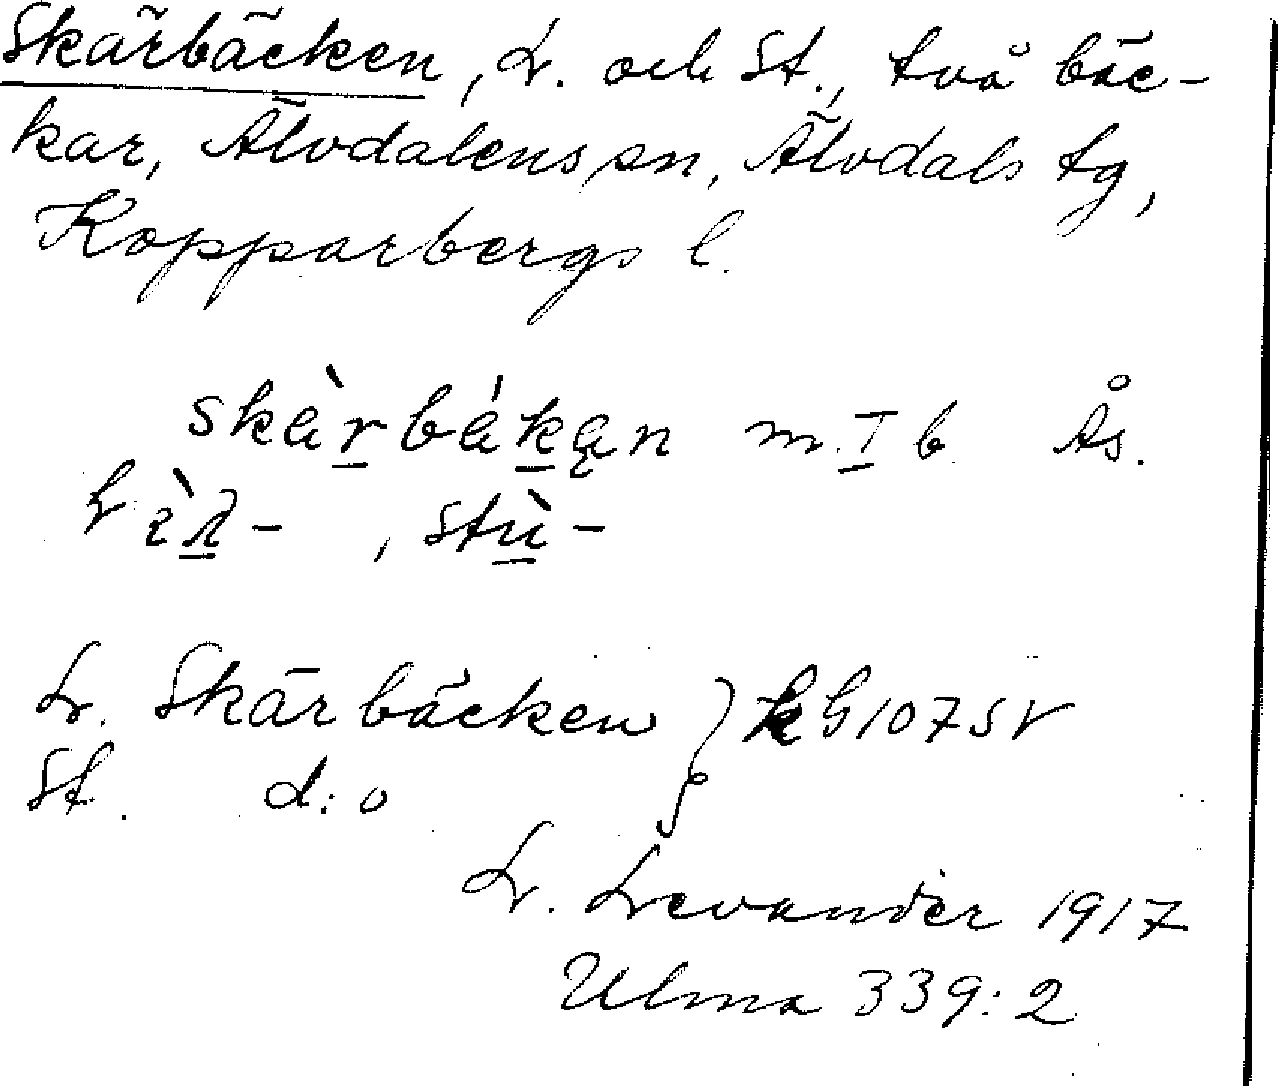 Skärbäcken, L. och St., två bäc-
kar, Älvdalens sn, Älvdals tg,
Kopparbergs l.
skàrbákąn m. I b Ås.
, stù-
L. Skärbäcken } kG107SV
St. d:o
L. Levander 1917
Ulma 339:2